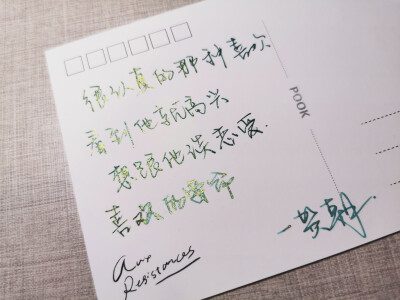 很认真的那种喜欢
看到他就高兴
想跟他谈恋爱.
喜欢的要命
POOK
Aux
Resistances